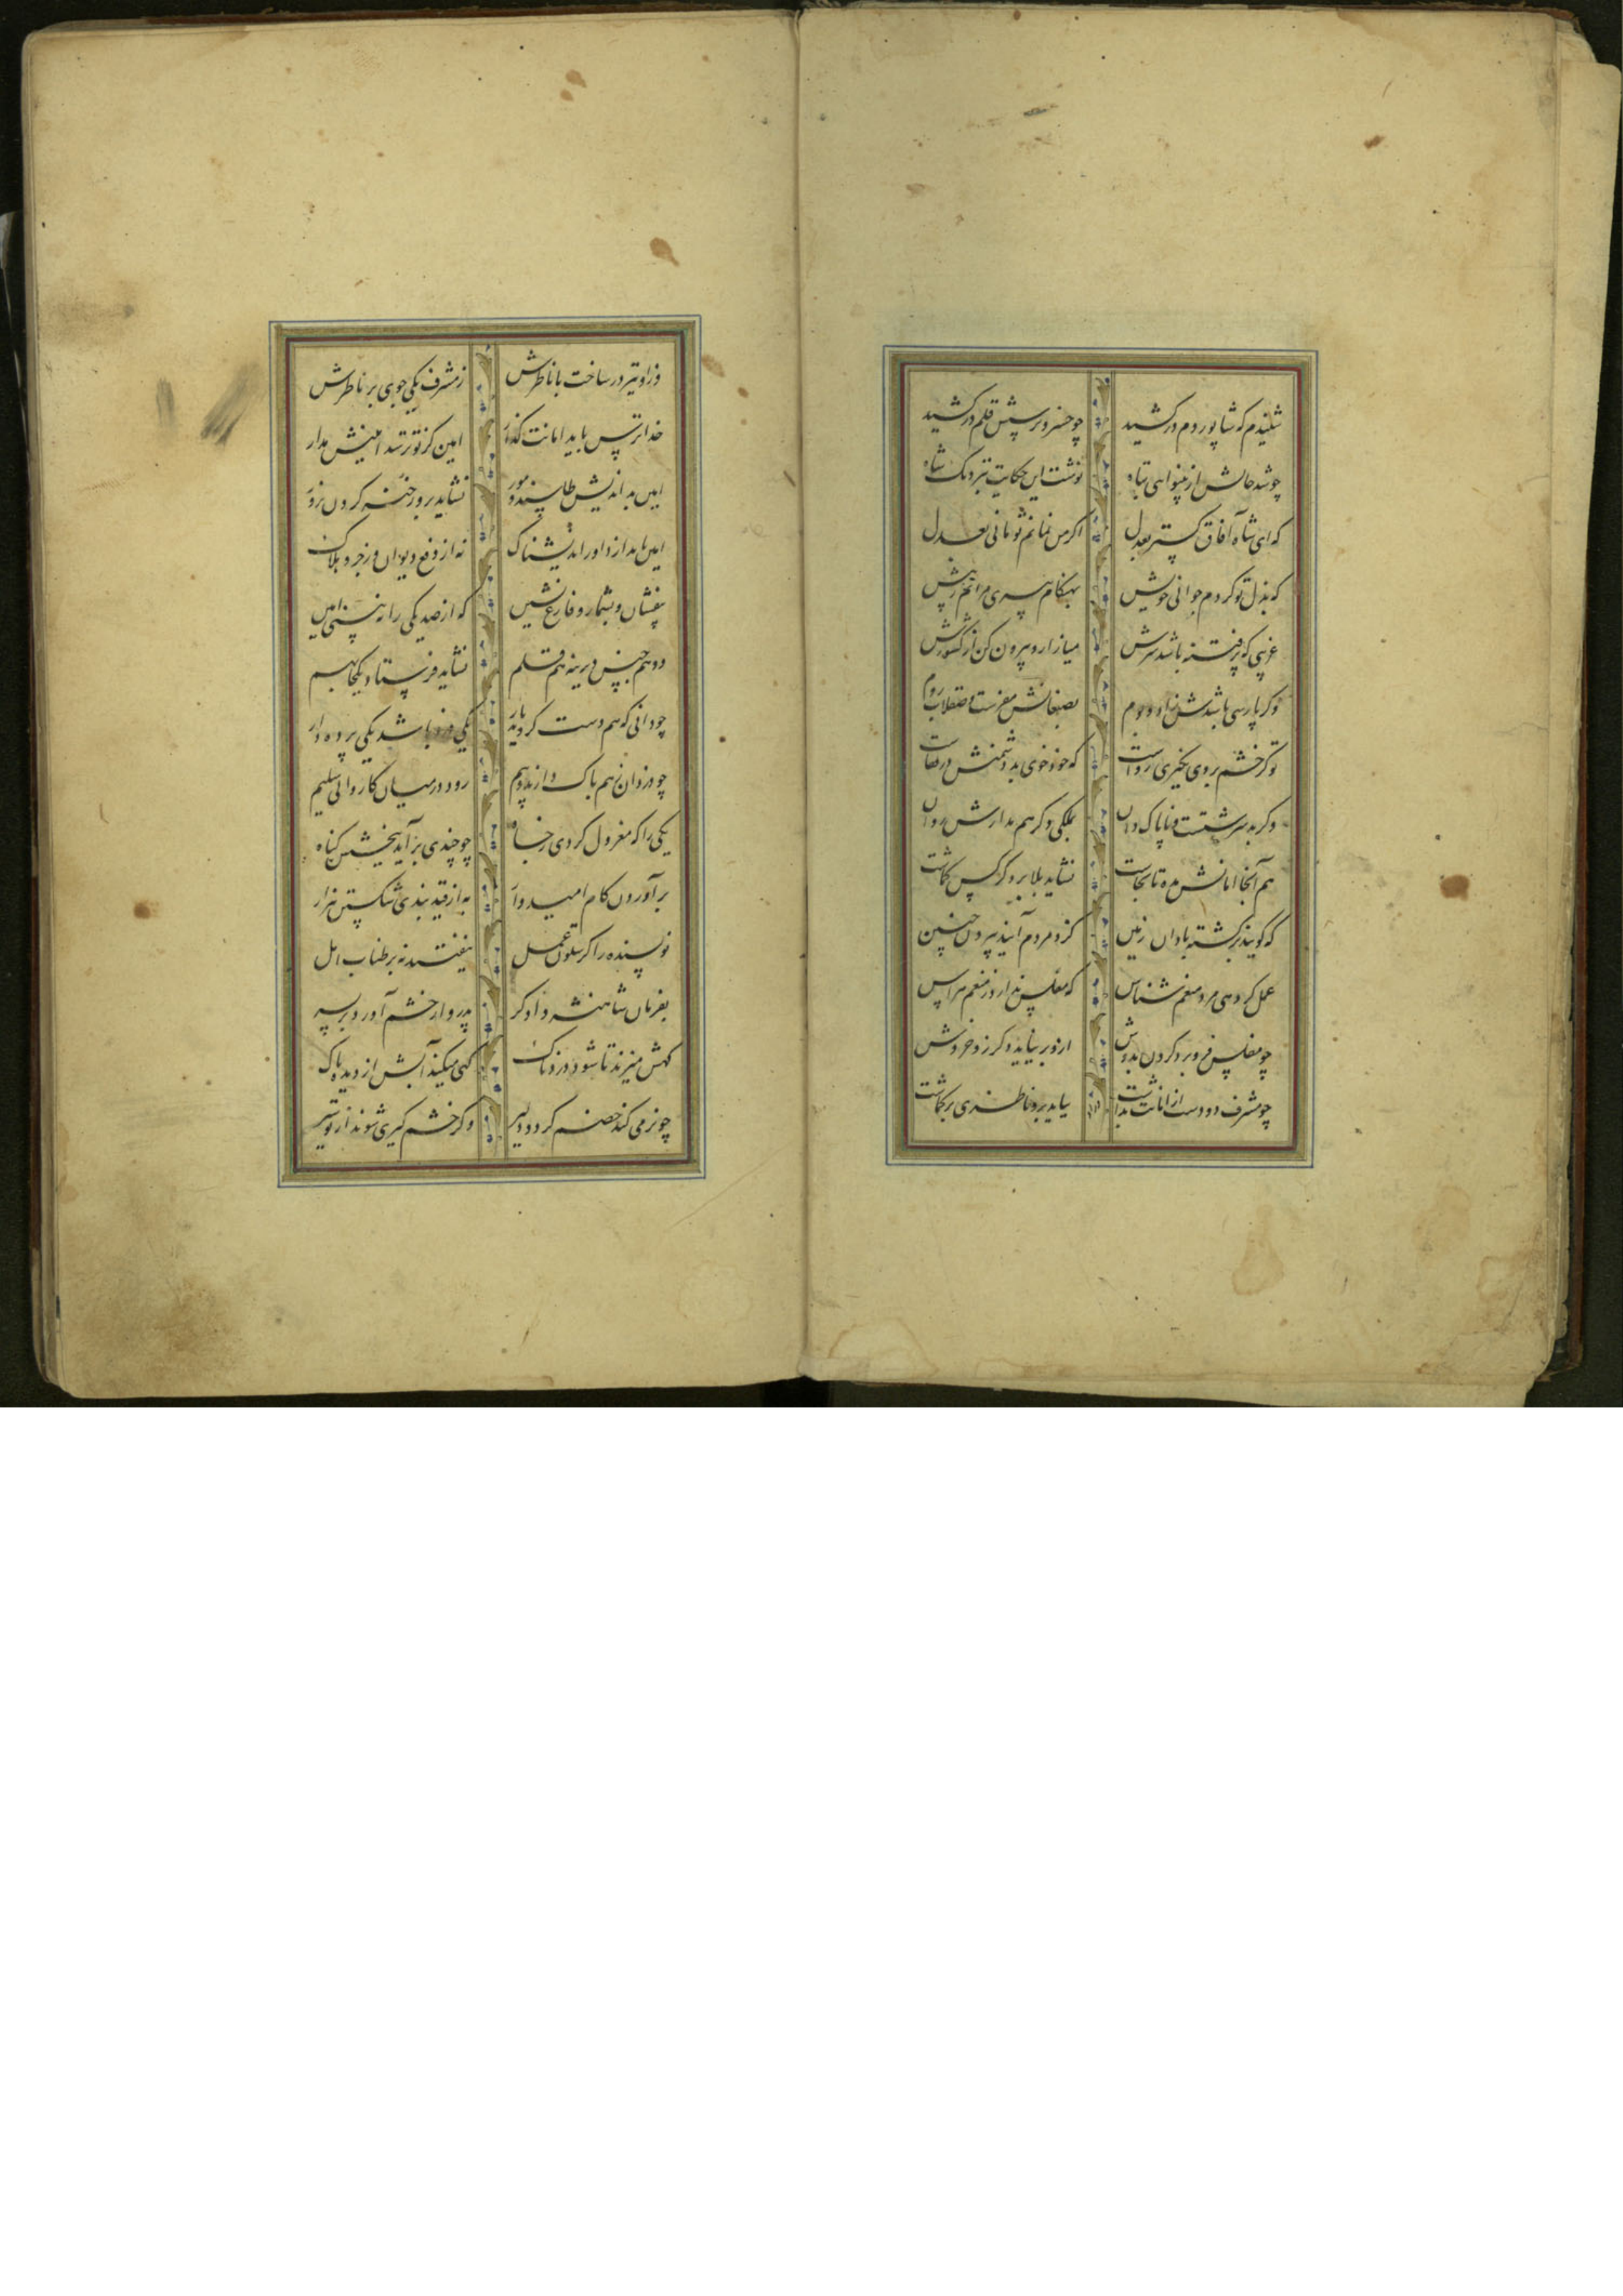 شنیدم که شاپور دم درکشید چو خسرو برسمش قلم درکشید
چو شد حالش از بینوایی تباه نوشت این حکایت بنزدیک شاه
که ای شاه آفاق گستر بعدل اگر من نمانم تو مانی بعدل
که بذل تو کردم جوانی خویش بهنگام پیری مرانم ز پیش
غریبی که پرفتنه باشد سرش میازار و بیرون کن از کشورش
وگر پارسی باشدش زاد و بوم بصنعانش مفرست و صقلاب و روم
تو گر خشم بر وی نگیری رواست که خود خوی بد دشمنش در قفاست
وگر بد سرشتست و ناپاک
هم آنجا امانش مده تا بچاشت نشاید بلا بر دگر کس گماشت
که گویند برگشته باد آن زمین کزو مردم آیند بیرون چنین
عمل گر دهی مرد منعم شناس که مفلس ندارد ز منعم هراس
چو مفلس فرو برد گردن بدوش ازو بر نیاید دگر جز خروش
چو مشرف دو دست از امانت بداشت بباید برو ناظری برگماشت
ور او نیز در ساخت با ناظرش ز مشرف یکی جوی بر ناظرش
خداترس باید امانت گذار امین کز تو ترسد امینش مدار
امین بداندیش نشاید برو رخنه کردن بزور
امین باید از داور اندیشناک نه از رفع دیوان و زجر و هلاک
بیفشان و بشمار و فارغ نشین که از صد یکی را نبینی امین
دو همجنس دیرینه هم قلم نشاید فرستاد یکجا بهم
چو دانی که همدست گردند یار یکی دزد باشد یکی پرده دار
چو دزدان ز هم باک دارند و بیم رود در میان کاروانی سلیم
یکی را که معزول کردی ز جاه چو چندی برآید ببخشش گناه
برآوردن کام امیدوار به از قید بندی شکستن هزار
نویسنده را گر ستون عمل بیفتد نبرد طناب امل
بفرمان شاهنشه دادگر پدروار خشم آورد بر پسر
گهش میزند تا شود دردناک گهی میکند آبش از دیده پاک
چو نرمی کند خصم گردد دلیر وگر خشم گیری شوند از تو سیر